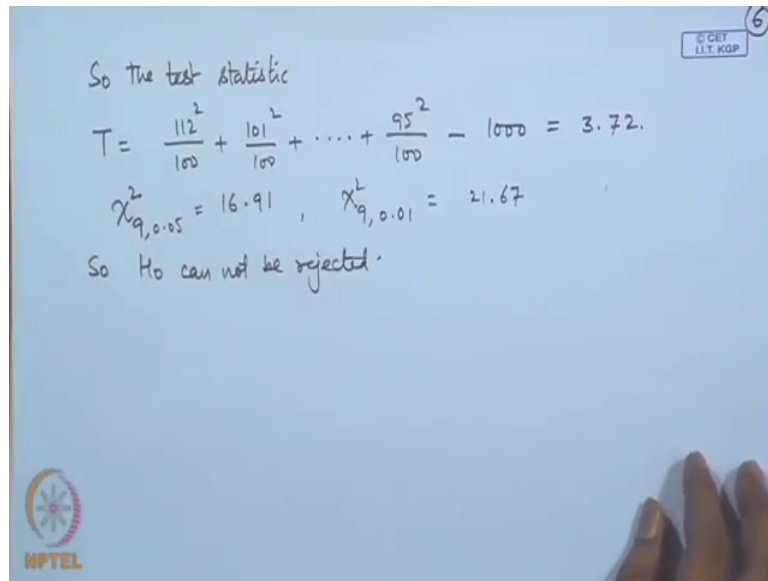 6
© CET
I.I.T. KGP
So the test statistic
T = 112²/100 + 101²/100 + ····· + 95²/100 - 1000 = 3.72.
χ²9,0.05 = 16.91 , χ²9,0.01 = 21.67
So Ho can not be rejected.
NPTEL